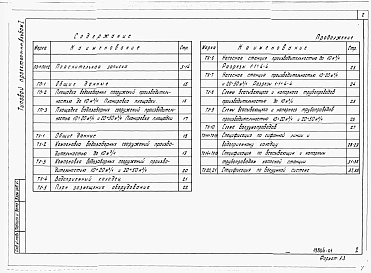 2
Содержание
Марка
Наименование
Стр.
Пояснительная записка
3-14
ГП-1
Общие данные
15
ГП-2
Площадка водозаборных сооружений производитель-
ностью до 10 м³/ч. Планировка площадки
16
ГП-3
Площадка водозаборных сооружений производитель-
ностью 10÷20 и 20÷50 м³/ч. Планировка площадки
17
ТХ-1
Общие данные
18
ТХ-2
Компоновка водозаборных сооружений произво-
дительностью до 10 м³/ч
19
ТХ-3
Компоновка водозаборных сооружений произво-
дительностью 10÷20 и 20÷50 м³/ч
20
ТХ-4
Водоприемный колодец
21
ТХ-5
План размещения оборудования
22
Продолжение
Марка
Наименование
Стр.
ТХ-6
Насосная станция производительностью до 10 м³/ч
Разрезы 1-1÷4-4
23
ТХ-7
Насосная станция производительностью 10÷20 м³/ч
и 20÷50 м³/ч. Разрезы 1-1÷4-4
24
ТХ-8
Схема всасывающих и напорных трубопроводов
производительностью до 10 м³/ч
25
ТХ-9
Схема всасывающих и напорных трубопроводов
производительностью 10÷20 м³/ч и 20÷50 м³/ч
26
ТХ-10
Схема воздухопроводов
27
Спецификация по сифонной линии и
водоприемному колодцу
Спецификация по всасывающим и напорным
трубопроводам насосной станции
Спецификация по вакуумной системе
2
Формат А3